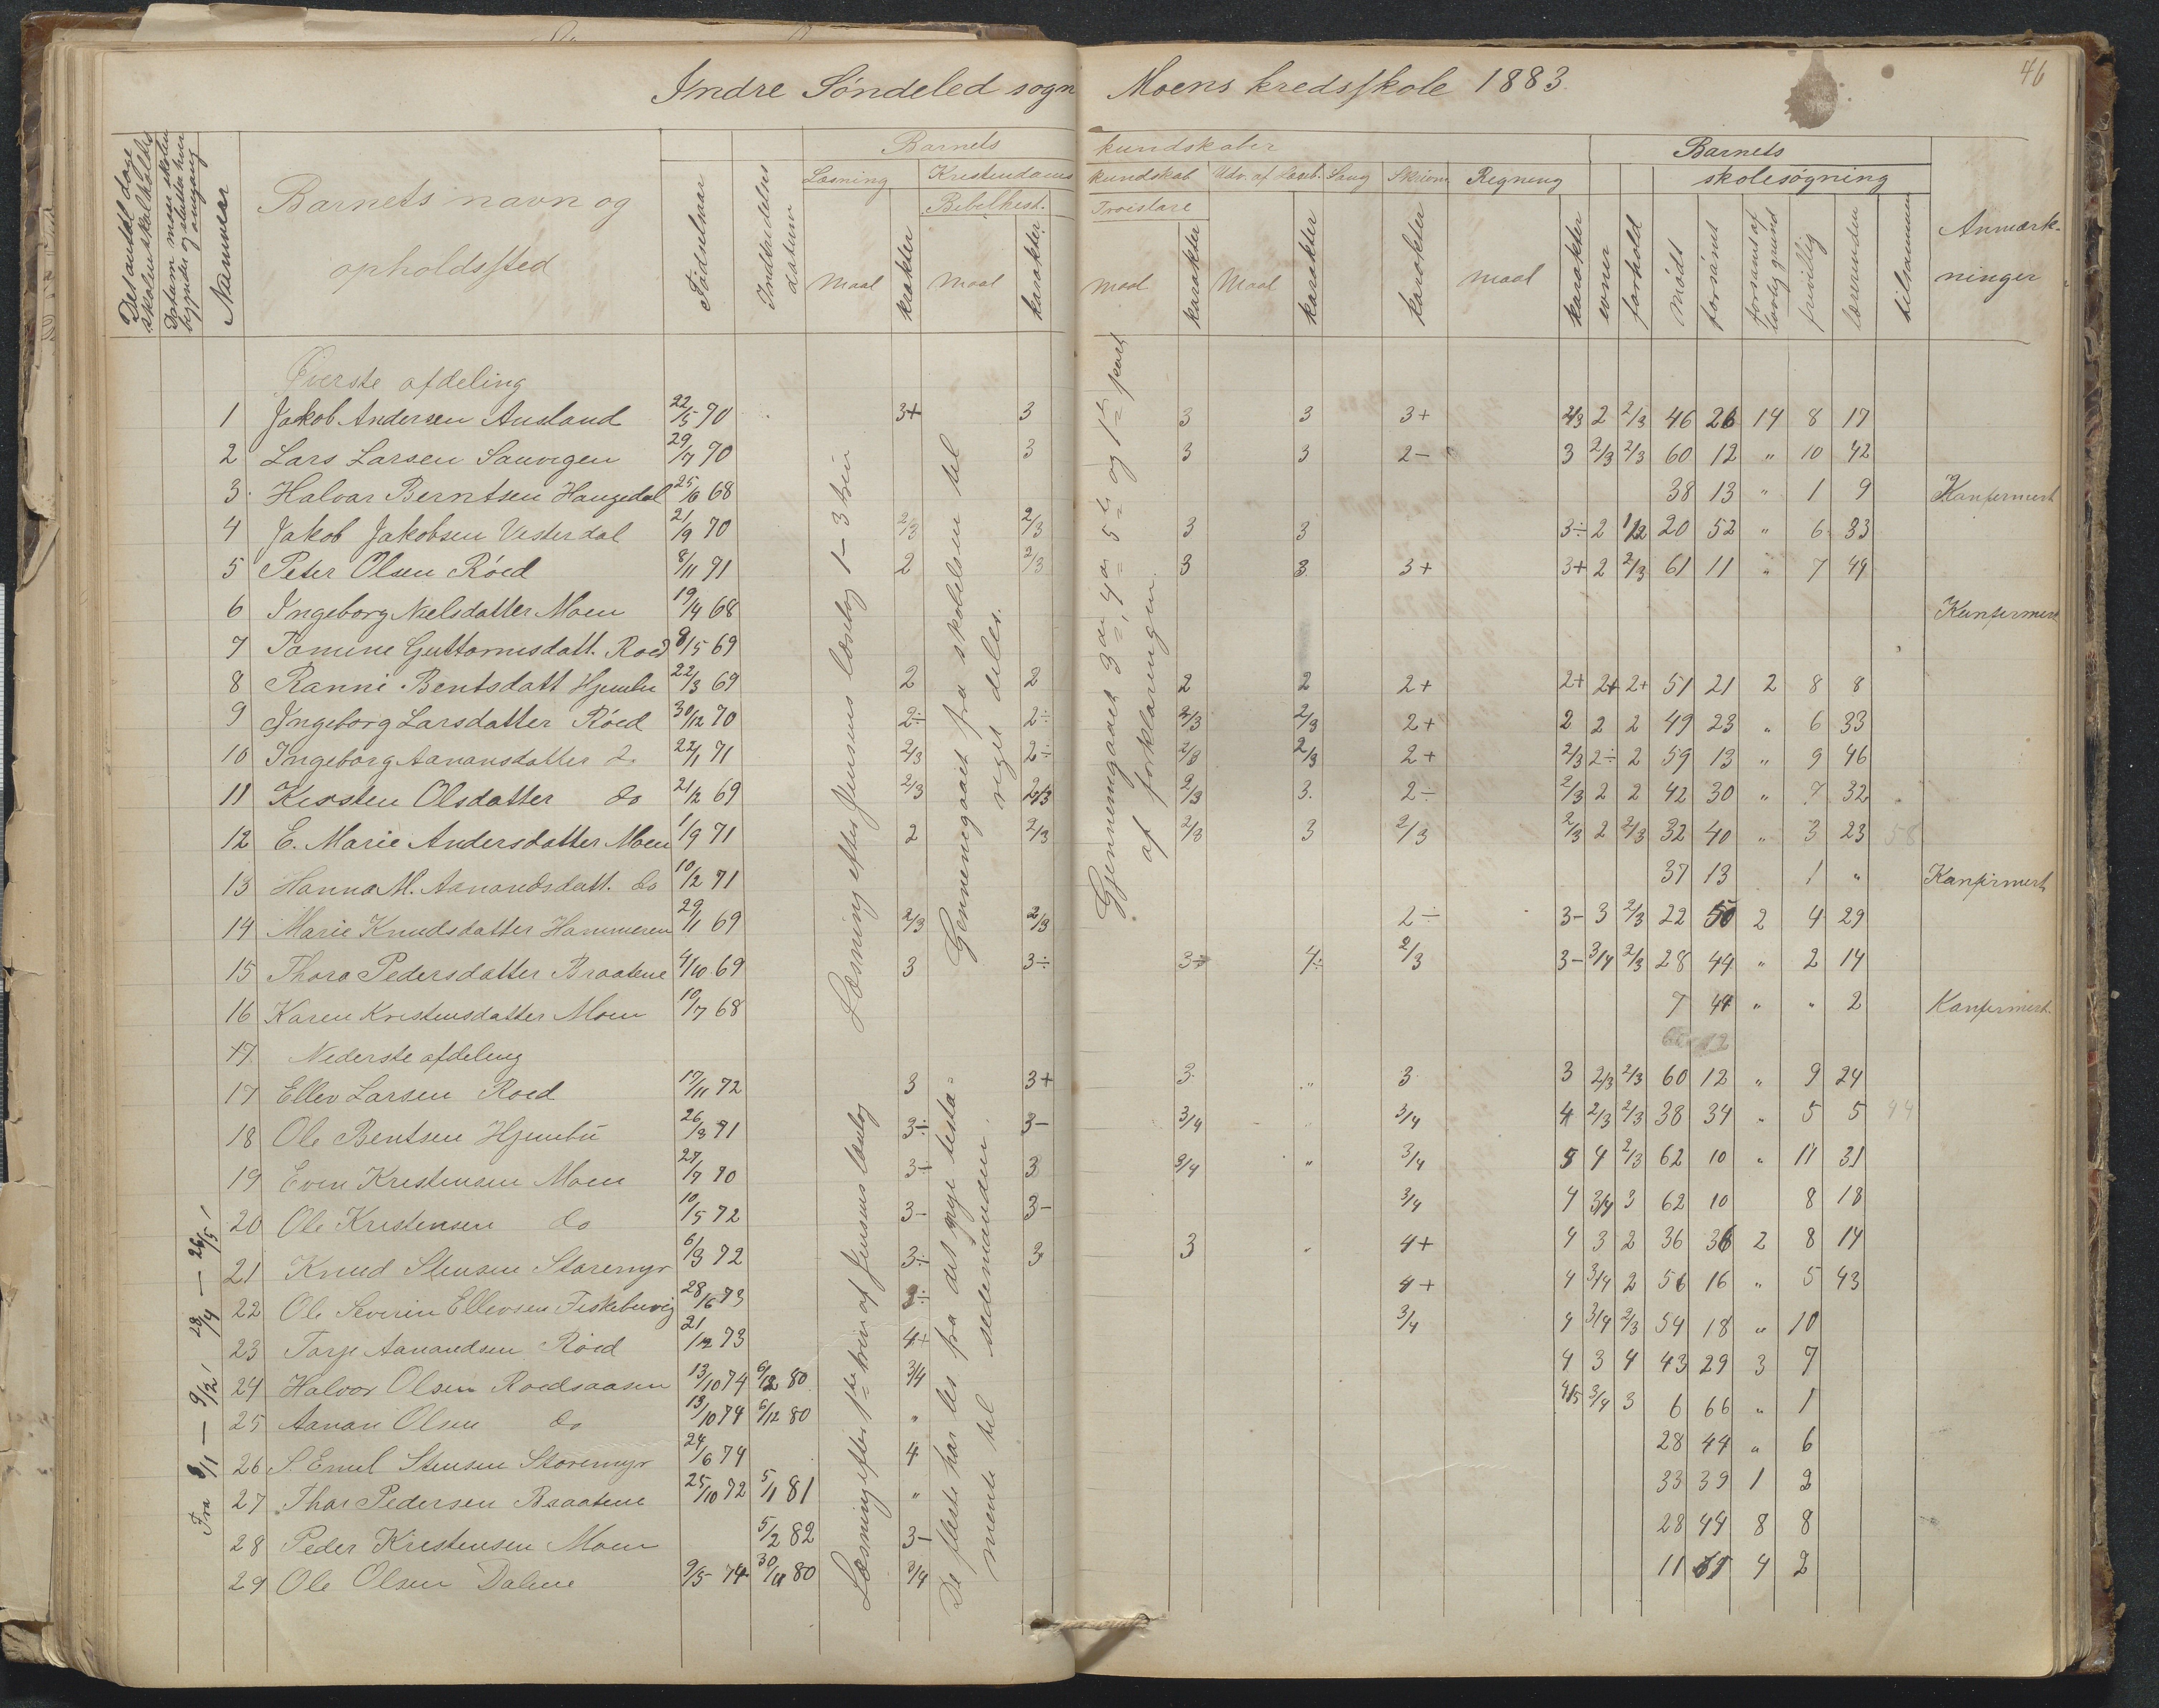 46
Indre Søndeled sogn Moens kredsskole 1883.
Det antal dage skolen skal holdes
Datum naar skolen begynder og slutter hver omgang
Nummer
Barnets navn og opholdssted
Fødselsaar
Indtrædelses datum
Barnets kundskaber
Læsning
Kristendoms kundskab
Bibelhist.
Troeslære
Udv. af Læseb.
Sang
Skrivn.
Regning
Maal karakter Maal karakter Maal karakter Maal karakter karakter Maal karakter
evner forhold
Barnets skolesøgning
mødt forsømt forsømt af lovlig grund frivillig
Anmærkninger
Øverste afdeling
1 Jakob Andersen Ausland 22/5 70 3+ 3 3 3 3+ 2/3 2 2/3 46 26 14 8 17
2 Lars Larsen Sauvigen 29/7 70 3 3 3 2- 3 2/3 2/3 60 12 " 10 42
3 Halvor Berntsen Haugedal 25/6 68 38 13 " 1 9 Konfirmert
4 Jakob Jakobsen Vesterdal 21/9 70 2/3 2/3 3 3 3÷ 2 1/2 20 52 " 6 33
5 Peter Olsen Röed 8/11 71 2 2/3 3 3 3+ 3+ 2 2/3 61 11 " 7 49
6 Ingeborg Nielsdatter Moen 19/4 68 Konfirmert
7 Tomine Guttormsdatt. Roed 8/5 69
8 Ranni Bentsdatt Hjembu 22/3 69 2 2 2 2 2+ 2+ 2+ 2+ 51 21 2 8 8
9 Ingeborg Larsdatter Röed 30/12 70 2÷ 2÷ 2/3 2/3 2+ 2 2 2 49 23 " 6 33
10 Ingeborg Aanonsdatter do 22/1 71 2/3 2÷ 2/3 2/3 2+ 2/3 2÷ 2 59 13 " 9 46
11 Kirsten Olsdatter do 21/2 69 2/3 2/3 2/3 3. 2÷ 2/3 2 2 42 30 " 7 32
12 E. Marie Andersdatter Moen 1/9 71 2 2/3 2/3 3 2/3 2/3 2 2/3 32 40 " 3 23 58
13 Hanna M. Aanondsdatt. do 10/2 71 37 13 1 " Konfirmert
14 Marie Knudsdatter Hammeren 29/11 69 2/3 2/3 2÷ 3- 3 2/3 22 50 2 4 29
15 Thora Pedersdatter Braatene 4/10 69 3 3÷ 3÷ 4÷ 2/3 3- 3/4 2/3 28 44 " 2 14
16 Karen Kristensdatter Moen 10/7 68 7 44 " " 2 Konfirmert.
17 Nederste afdeling
17 Ellev Larsen Roed 17/11 72 3 3+ 3 " 3 3 2/3 2/3 60 12 " 9 24
18 Ole Bentsen Hjembu 26/3 71 3÷ 3- 3/4 3/4 4 2/3 2/3 38 34 " 5 5 44
19 Even Kristensen Moen 27/7 70 3- 3 3/4 " 3/4 5 4 2/3 62 10 " 11 31
20 Ole Kristensen do 10/5 72 3- 3- 3/4 4 3/4 3 62 10 8 18
21 Knud Stensen Storemyr 6/3 72 3÷ 3 3 4+ 4 3 2 36 36 2 8 14
22 Ole Severin Ellevsen Fiskebuvig 28/6 73 3÷ 4+ 4 3/4 2 56 16 " 5 43
23 Torje Aanondsen Röed 21/12 73 4+ 3/4 4 3/4 2/3 54 18 " 10
24 Halvor Olsen Roedsaasen 13/10 74 6/12 80 3/4 4 3 4 43 29 3 7
25 Aanon Olsen do 13/10 74 6/12 80 " 4/5 3/4 3 6 66 " 1
26 S. Emil Stensen Storemyr 24/6 74 4 28 44 " 6
27 Thor Pedersen Braatene 25/10 72 5/1 81 " 33 39 1 2
28 Peder Kristensen Moen 5/2 82 3- 28 44 8 8
29 Ole Olsen Dalene 9/5 74 30/11 80 3/4 11 61 4 2
Fra 3/1 — 9/2 23/4 — 26/5
Læsning efter Jensens læsebog 1-3 trin
Gennemgaaet fra skoleloven til riget deles.
Gjennemgaaet 3die, 4de, 5te og 1ste part af forklaringen.
Læsning efter 1ste trin af Jensens læsebog
De fleste har læs fra det nye testamente til sedemanden.